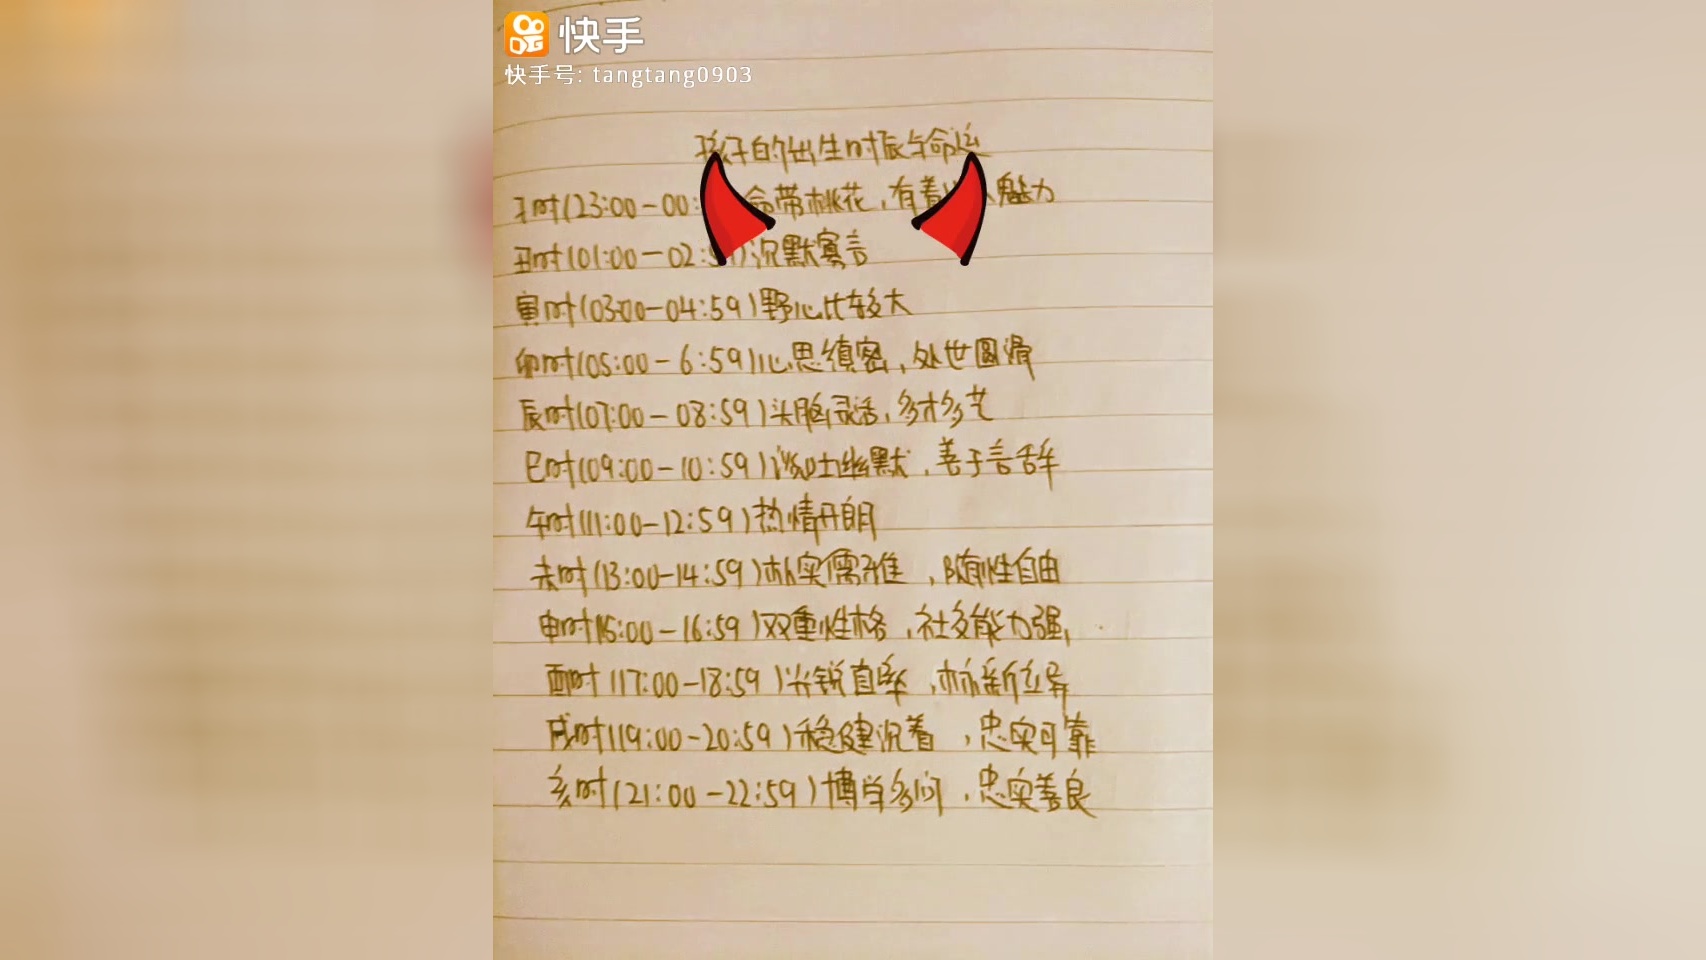 快手
快手号: tangtang0903
孩子的出生时辰与命运
子时(23:00-00: 命带桃花,有着 魅力
丑时(01:00-02:59)沉默寡言
寅时(03:00-04:59)野心比较大
卯时(05:00-6:59)心思缜密,处世圆滑
辰时(07:00-08:59)头脑灵活,多才多艺
巳时(09:00-10:59)风幽默,善于言辞
午时(11:00-12:59)热情开朗
未时(13:00-14:59)朴实儒雅,随性自由
申时(15:00-16:59)双重性格,社交能力强,
酉时(17:00-18:59)尖锐直率,标新立异
戌时(19:00-20:59)稳健沉着,忠实可靠
亥时(21:00-22:59)博学多问,忠实善良